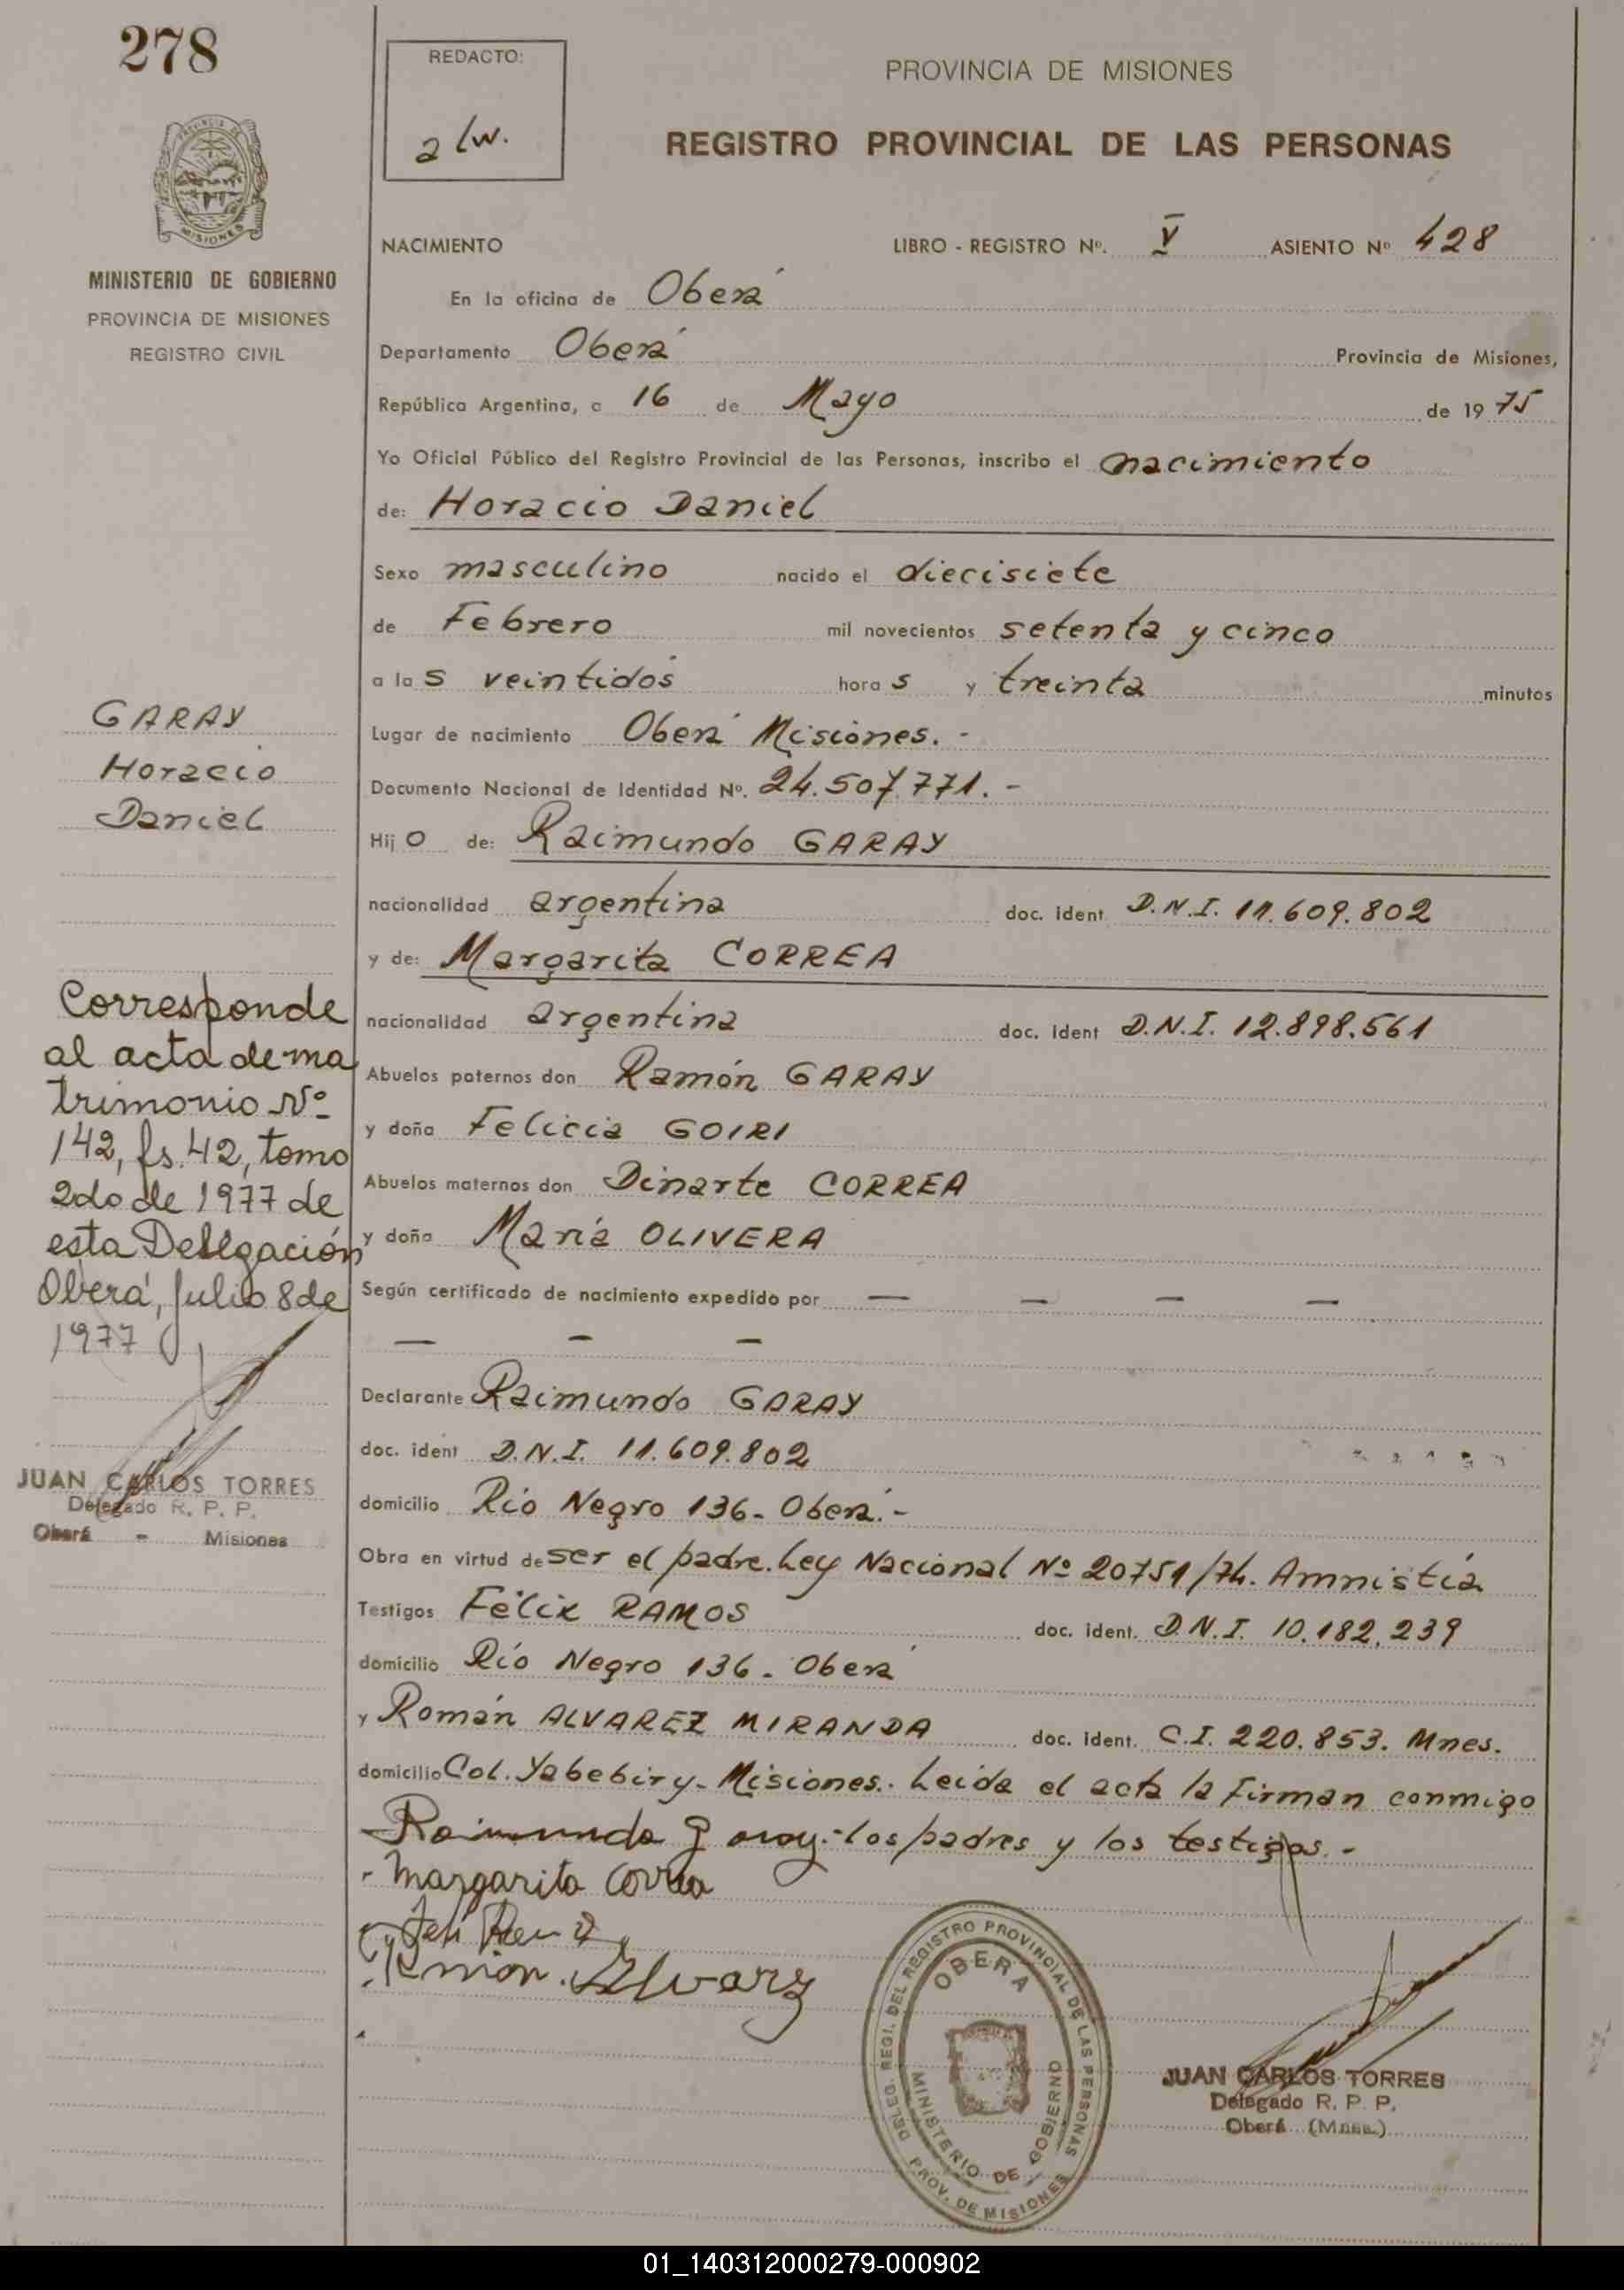 278
REDACTO:
a lw.
PROVINCIA DE MISIONES
REGISTRO PROVINCIAL DE LAS PERSONAS
PROVINCIA DE
MISIONES
MINISTERIO DE GOBIERNO
PROVINCIA DE MISIONES
REGISTRO CIVIL
NACIMIENTO LIBRO - REGISTRO Nº. V ASIENTO Nº 428
En la oficina de Oberá
Departamento Oberá Provincia de Misiones,
República Argentina, a 16 de Mayo de 1975
Yo Oficial Público del Registro Provincial de las Personas, inscribo el nacimiento
de: Horacio Daniel
Sexo masculino nacido el diecisiete
de Febrero mil novecientos setenta y cinco
a las veintidós horas y treinta minutos
Lugar de nacimiento Oberá Misiones. -
Documento Nacional de Identidad Nº. 24.507.771. -
Hijo de: Raimundo GARAY
nacionalidad argentina doc. ident D.N.I. 11.609.802
y de: Margarita CORREA
nacionalidad argentina doc. ident D.N.I. 12.898.561
Abuelos paternos don Ramón GARAY
y doña Felicia GOIRI
Abuelos maternos don Dinarte CORREA
y doña María OLIVERA
Según certificado de nacimiento expedido por — — — —
— — —
Declarante Raimundo GARAY
doc. ident D.N.I. 11.609.802
domicilio Río Negro 136. Oberá. -
Obra en virtud de ser el padre. Ley Nacional Nº 20751/74. Amnistía
Testigos Félix RAMOS doc. ident. D.N.I. 10.182.239
domicilio Río Negro 136. Oberá
y Román ALVAREZ MIRANDA doc. ident. C.I. 220.853. Mnes.
domicilio Col. Yabebiry - Misiones. Leída el acta la firman conmigo
Raimundo Garay.- los padres y los testigos. -
Margarita Correa
GARAY
Horacio
Daniel
Corresponde
al acta de ma
trimonio Nº
142, fs. 42, tomo
2do de 1977 de
esta Delegación
Oberá, Julio 8 de
1977
JUAN CARLOS TORRES
Delegado R. P. P.
Oberá - Misiones
DELEG. REGI. DEL REGISTRO PROVINCIAL DE LAS PERSONAS
OBERA
MINISTERIO DE GOBIERNO
PROV. DE MISIONES
JUAN CARLOS TORRES
Delegado R. P. P.
Oberá (Mnes.)
01_140312000279-000902